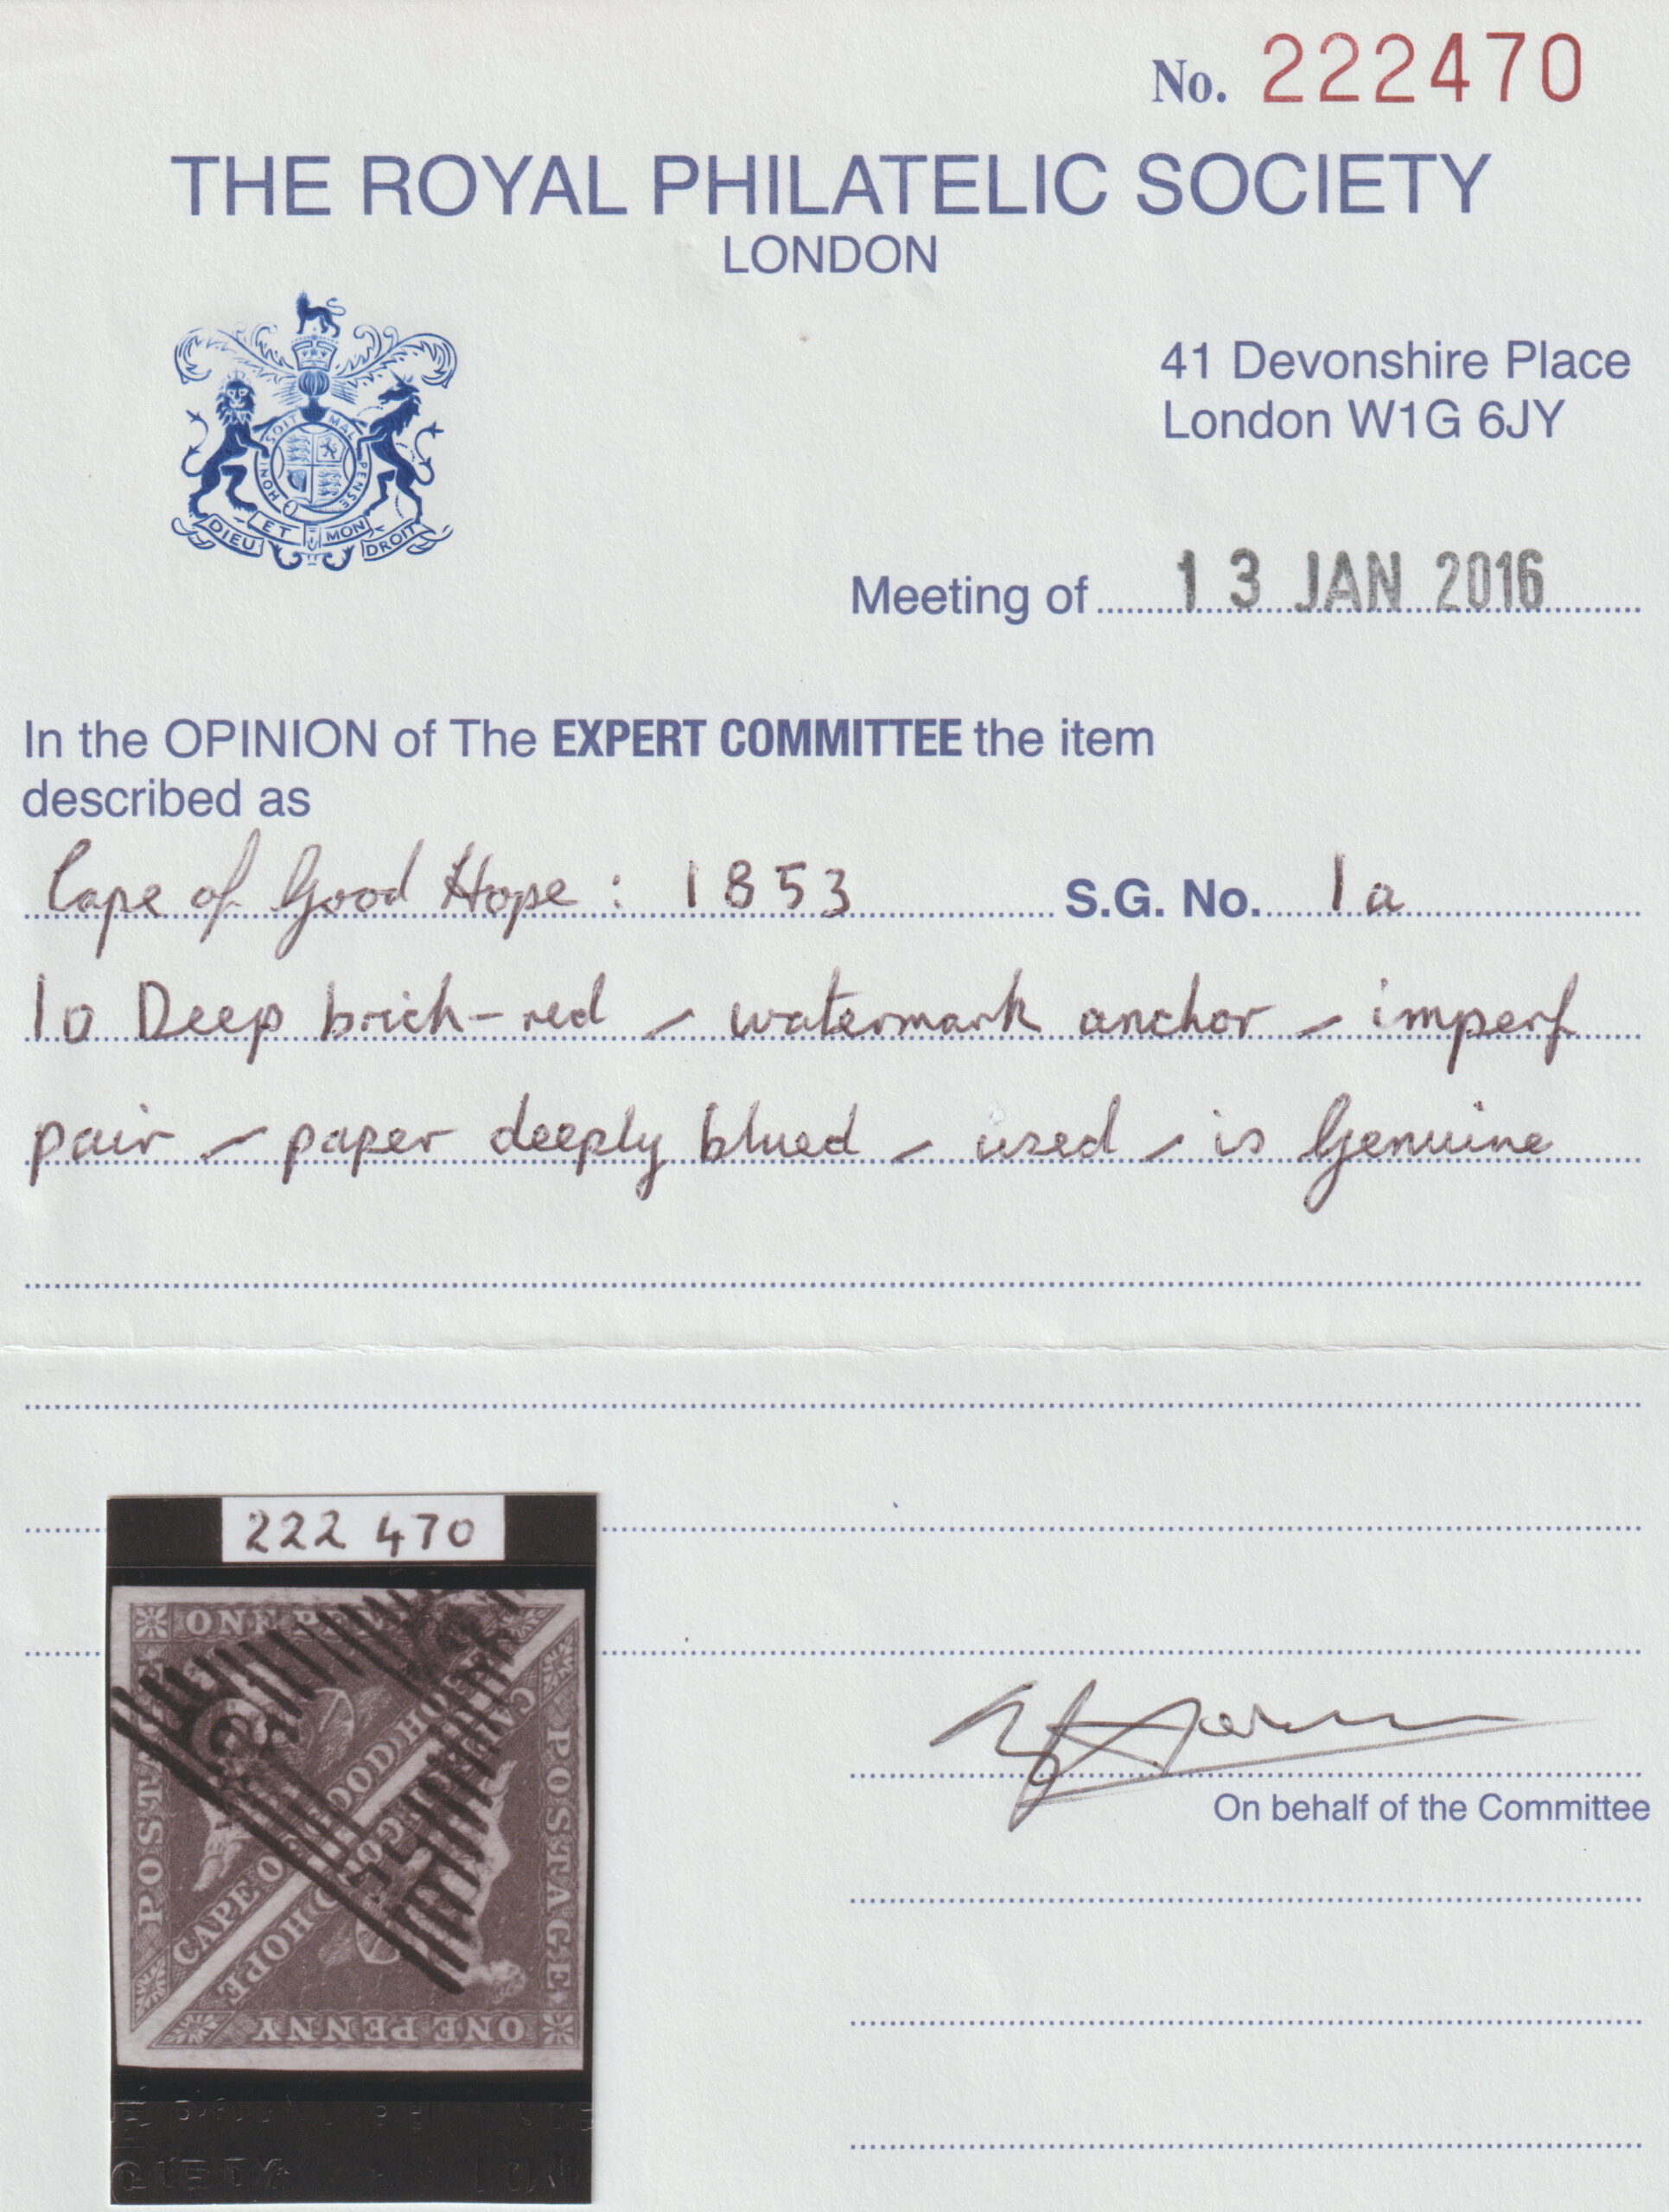 No. 222470
THE ROYAL PHILATELIC SOCIETY
LONDON
HONI SOIT MAL PENSE
DIEU ET MON DROIT
41 Devonshire Place
London W1G 6JY
Meeting of 13 JAN 2016
In the OPINION of The EXPERT COMMITTEE the item
described as
Cape of Good Hope : 1853 S.G. No. 1a
1D Deep brick-red - watermark anchor - imperf
pair - paper deeply blued - used - is Genuine
222 470
ONE PENNY
POSTAGE
CAPE OF GOOD HOPE
CAPE OF GOOD HOPE
POSTAGE
ONE PENNY
On behalf of the Committee